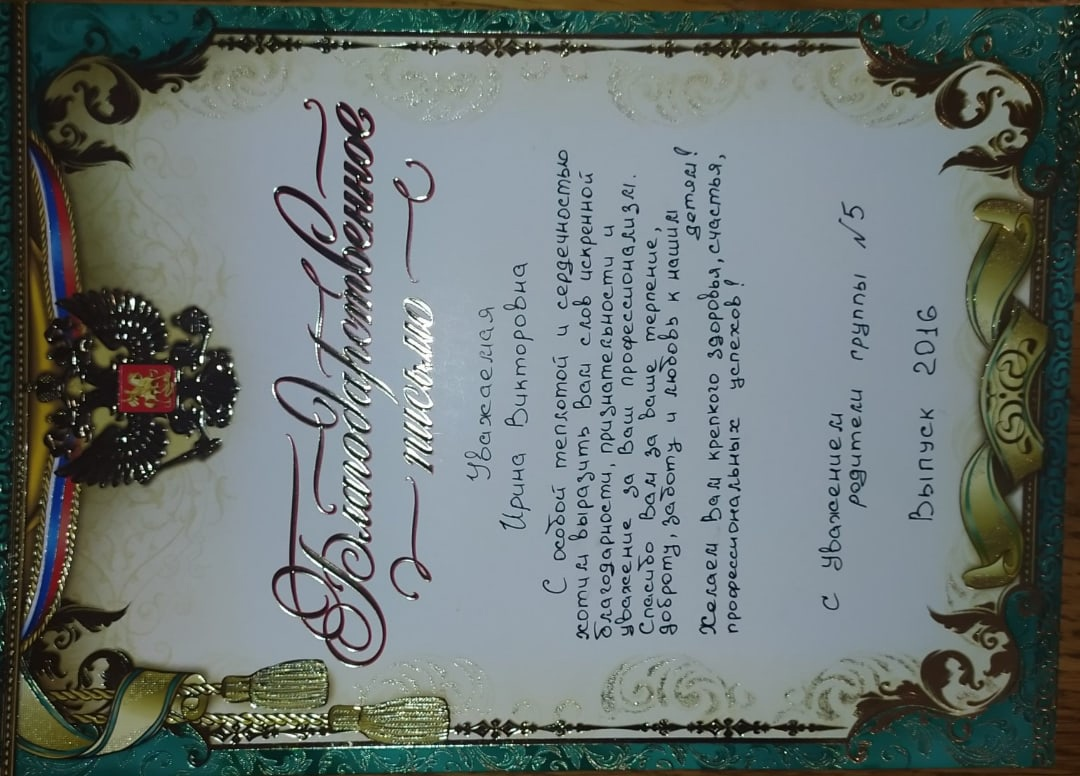 Благодарственное
письмо
Уважаемая
Ирина Викторовна
С особой теплотой и сердечностью
хотим выразить Вам слов искренной
благодарности, признательности и
уважение за Ваш профессионализм.
Спасибо Вам за ваше терпение,
доброту, заботу и любовь к нашим
детям!
Желаем Вам крепкого здоровья, счастья,
профессиональных успехов!
С уважением
родители группы №5
Выпуск 2016